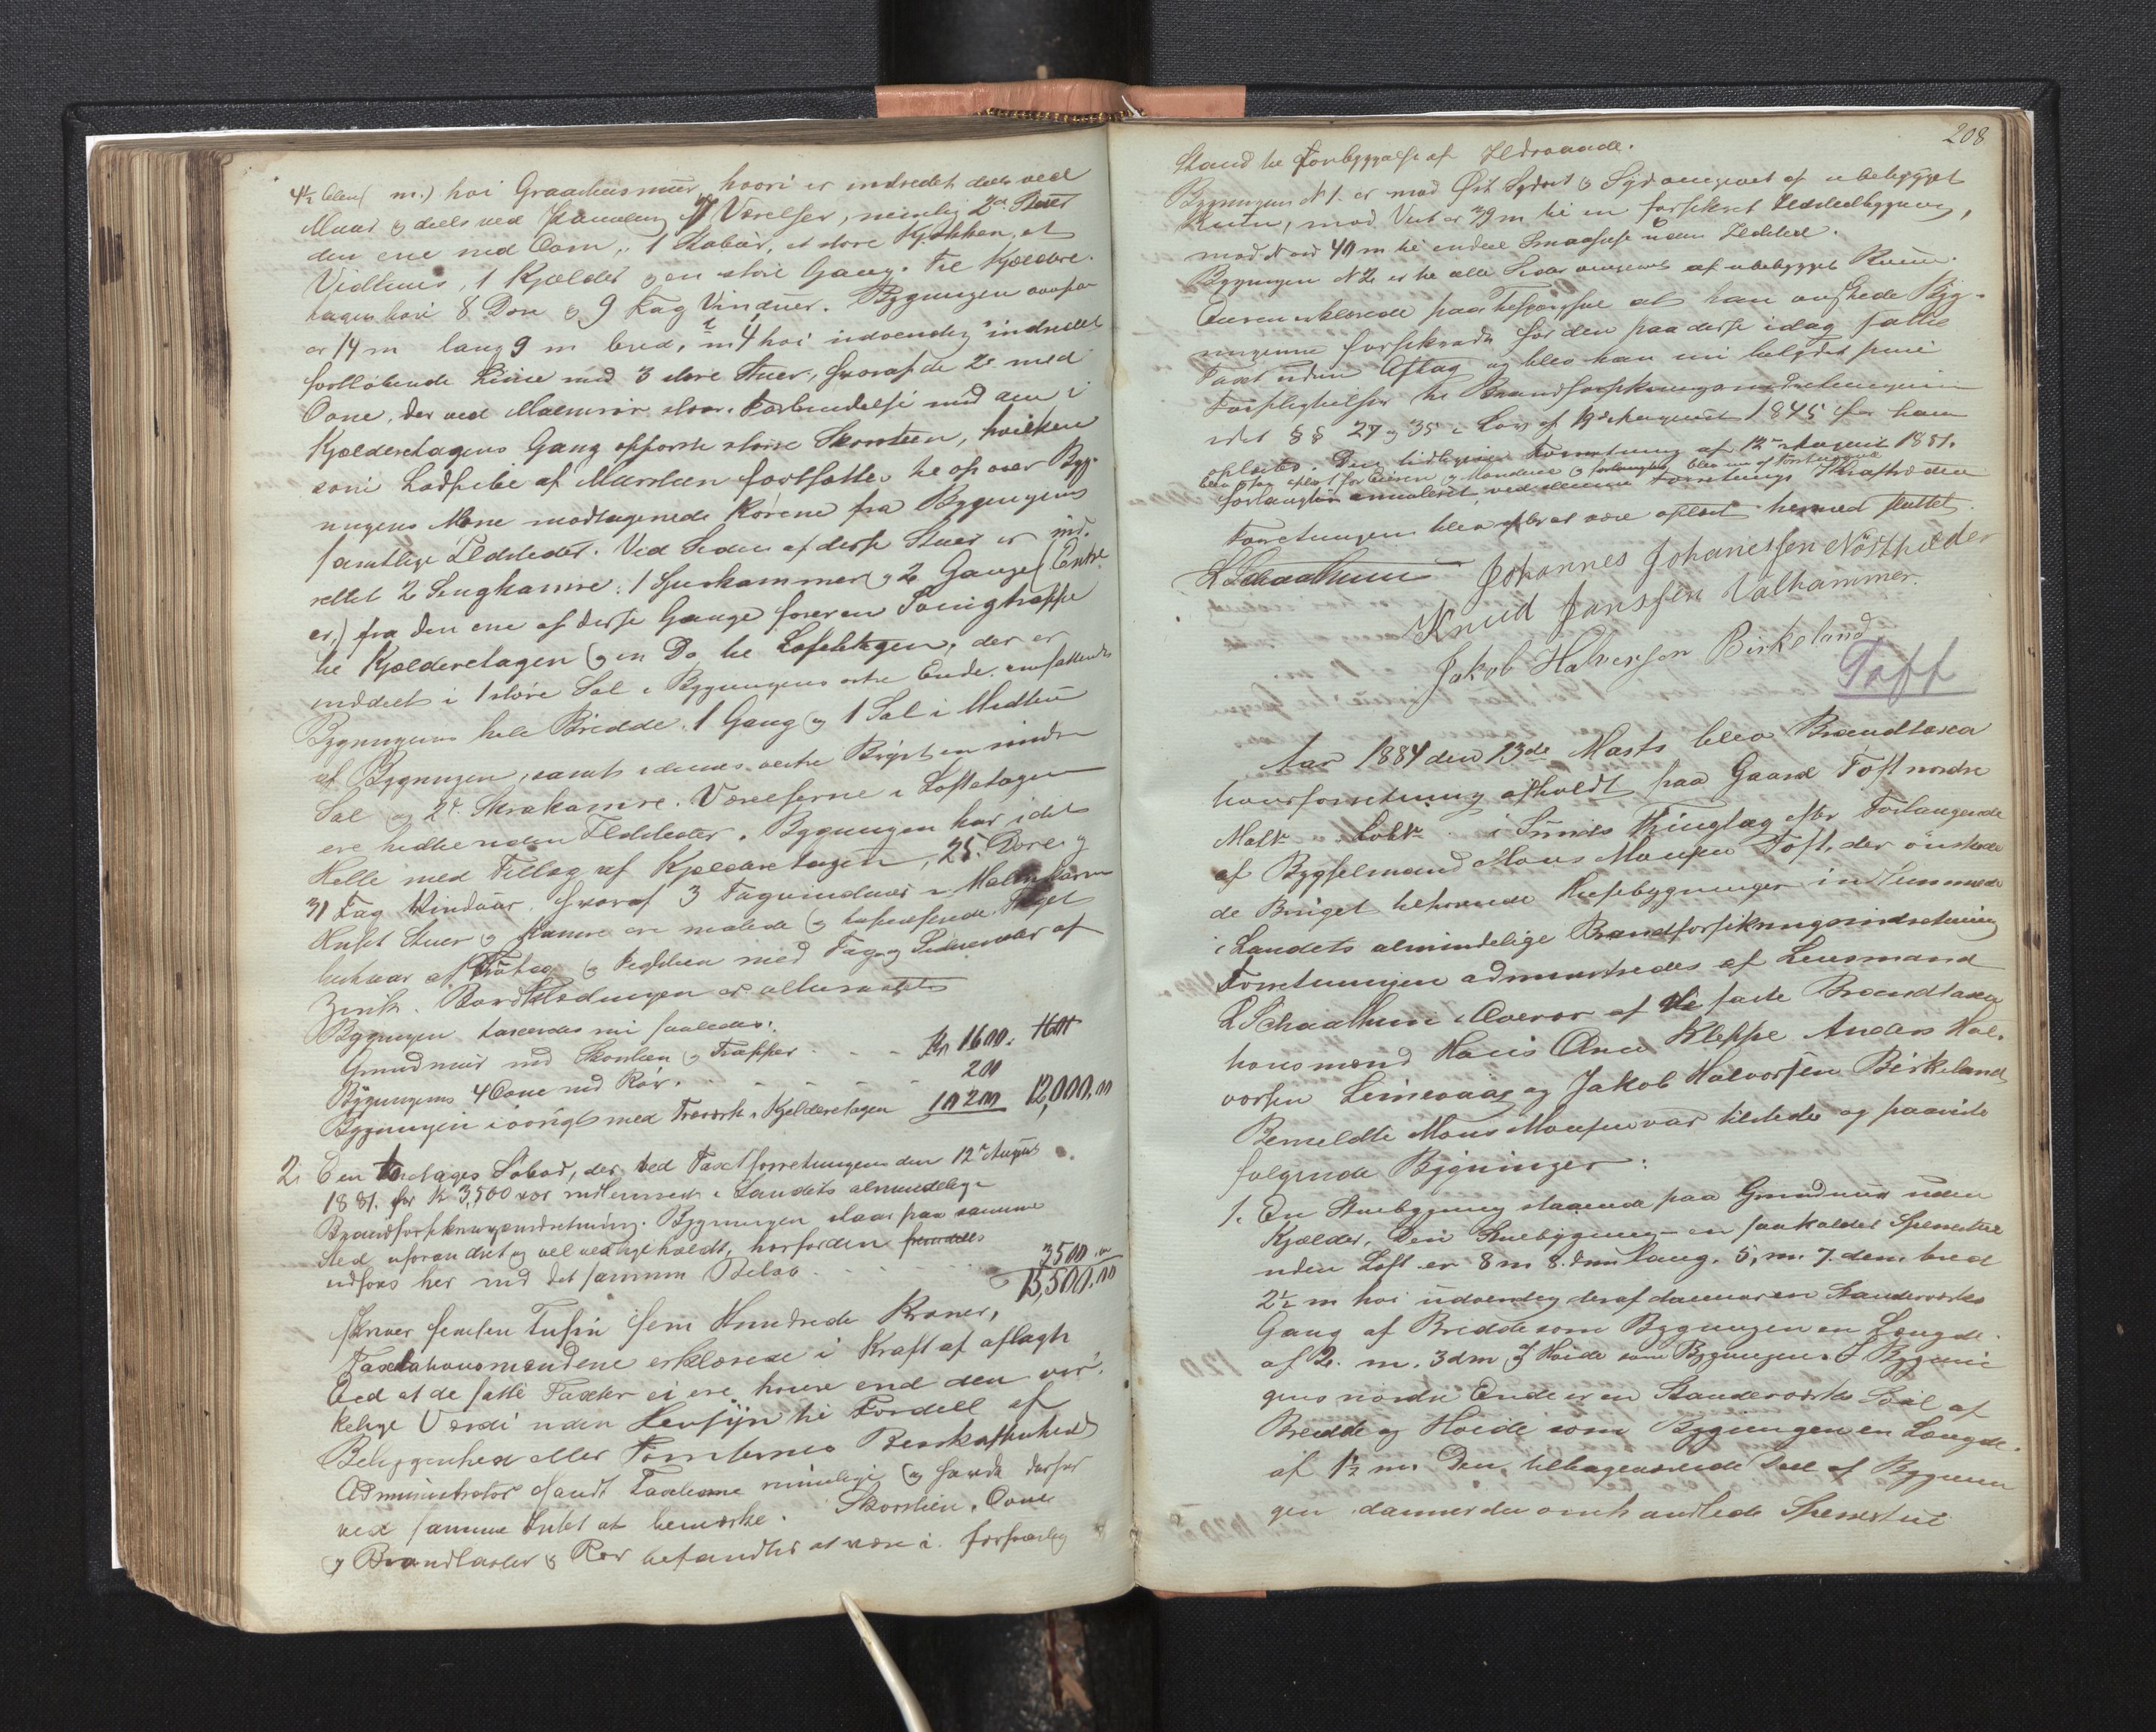 m.) høi Graasteensmuur, hvori er indredet dels ved
Muur & deels ved Værelser, nemlig 2de Stuer
den ene med Ovn, 1 Stabur, et store Kjøkken, et
Vedhuus, 1 Kjælder & en store Gang. Til Kjælder-
etagen høre 8 Døre & 9 Fag Vinduer. Bygningen ovenpaa
er 14 m lang 9 m bred, m 4 høi udvendig indredet
fortløbende Linie med 3 store Stuer, hvoraf de 2de med
Ovne, der ved staar i Forbindelse med den i
Kjælderetagens Gang opførte store Skorsteen, hvilken
som af Mursteen fortsættes til op over Byg-
ningens Møne modtagende Rørene fra Bygningens
samtlige Ildsteder. Ved Siden af disse Stuer er ind-
rettet 2 Sengkamre, 1 Spiskammer & 2 Gange (Entre-
er,) fra den ene af disse Gange fører en Svingtrappe
til Kjælderetagen & en Do til Loftetagen, der er
inddelt i 1 store Sal i Bygningens østre Ende omfattende
Bygningens hele Bredde, 1 Gang og 1 Sal i Midten
af Bygningen, samt i dennes vestre en mindre
Sal og 2de Skraakamre. Værelserne i Loftetagen
ere hidtil uden Ildsteder. Bygningen har i det
Hele med Tillæg af Kjælderetagen, 25 Døre &
31 Fag Vinduer, hvoraf 3 Tagvinduer i
Huset Stuer & Kamre ere malede & tapeserede. Taget
bestaar af & Tegsteen med Tag og af
Zink. Bordklædningen er
Bygningen taxeredes nu saaledes:
Grundmuur med Skorsteen & Trapper . . . Kr 1600.
Bygningens 4 Ovne med Rør . . . 200
Bygningen iøvrigt med Træværk i Kjælderetagen 10200 12,000,00
2. En toetages Søbod, der ved Taxtforretningen den 12te August
1881 for Kr 3,500 var indlemmet i Landets almindelige
Brandforsikringsindretning. Bygningen staar paa samme
Sted uforandret og vel vedligeholdt, hvorfor den
udføres her med det samme Beløb . . . 3500,00
15,500,00
skriver femten Tusen fem Hundrede Kroner,
Taxtationsmændene erklærede i Kraft af aflagte
Eed at de satte Taxter ei ere høiere end den vir-
kelige Værdi uden Hensyn til Fordell af
Beliggenhed eller Tomternes Beskaffenhed
Administrator fandt Taxterne rimelige og havde derfor
ved samme Intet at bemærke. Skorsteen, Ovne
& Brandtaxter & Rør befandtes at være i forsvarlig
208
Stand til Forebyggelse af Ildsvaade.
Bygningen N 1. er mod Øst Sydost & Syd omgivet af ubebygget
Ruum, mod Vest er 39 m til en forsikret Ildstedbygning,
mod Nord 40 m til endeel Smaahuse uden Ildsted.
Bygningen N 2 er til alle Sider omgivet af ubebygget Ruum.
Eieren erklærede paa Tilspørgsel at han ønskede Byg-
ningerne forsikrede for den paa disse idag satte
Taxt uden Aftag og blev han nu betydet sine
Forpligtelser til Brandforsikringsindretningen
idet §§ 27 og 35 i Lov af 1845 for ham
oplæstes. Den tidligere Forretning af 12te August 1881.
blev saa oplæst for Eieren & Mændene & blev nu af Førstnævnte
forlangtes annuleret ved denne Forretnings Ikrafttræden
Forretningen blev efter at være oplæst hermed sluttet.
L Schaathuun Johannes Johanessen Nordthilder
Knud Janssen Valhammer.
Jakob Halversen Birkeland
Toft
Aar 1884 den 13de Marts blev Brandtaxa-
tionsforretning afholdt paa Gaard Toft nordre
Matr Løbr i Sunds Thinglag efter Forlangende
af Bygselmand Mons Monsen Toft, der ønskede
de Bruget tilhørende Huusebygninger indlemmede
i Landets almindelige Brandforsikringsindretning
Forretningen administredes af Lensmand
L Schaathuun i Overvær af de faste Brandtaxa-
tionsmænd Hans Olsen Kleppe Anders Hal-
vorsen Leirvaag og Jakob Halvorsen Birkeland
Bemeldte Mons Monsen var tilstede og paaviste
følgende Bygninger:
1. En Stuebygning staaende paa Grundmuur uden
Kjælder. Den Stuebygning – en saakaldet Sperrestue
uden Loft er 8 m 8 dm lang, 5, m. 7. dcm. bred
2½ m høi udvendig deraf danner en Standerværks
Gang af Bredde som Bygningen en Længde
af 2. m. 3 dm & Høide som Bygningen. I Bygnin-
gens nordre Ende er en Standerværks Sval af
Bredde og Høide som Bygningen en Længde
af 1½ m. Den tilbageværende Deel af Bygnin-
gen danner den omhandlede Sperrestue